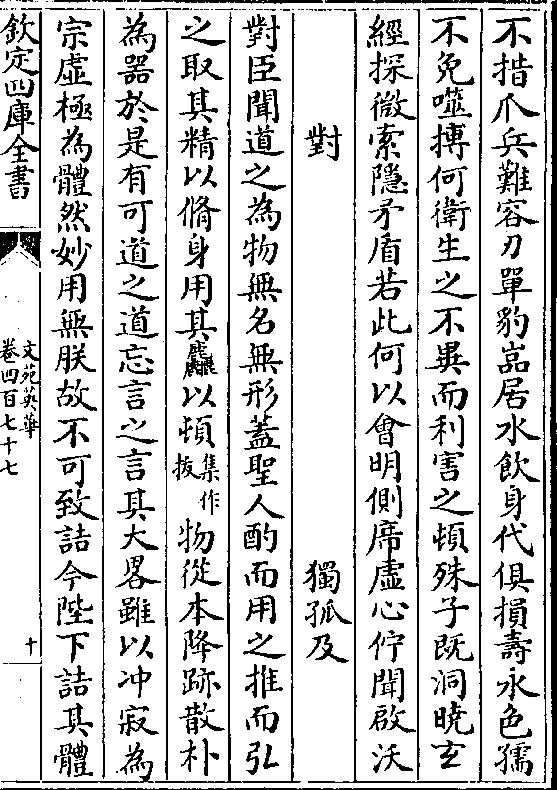 不措爪兵難容刃單豹嵓居水飲身代俱損壽永色孺
不免噬搏何衛生之不異而利害之頓殊子既洞曉玄
經探微索隱矛盾若此何以會明側席虛心佇聞啟沃
對　獨孤及
對臣聞道之為物無名無形蓋聖人酌而用之推而弘
之取其精以脩身用其麤以頓集作拔物從本降跡散朴
為器於是有可道之道忘言之言其大畧雖以冲寂為
宗虛極為體然妙用無朕故不可致詰今陛下詰其體
欽定四庫全書
文苑英華
卷四百七十七
十